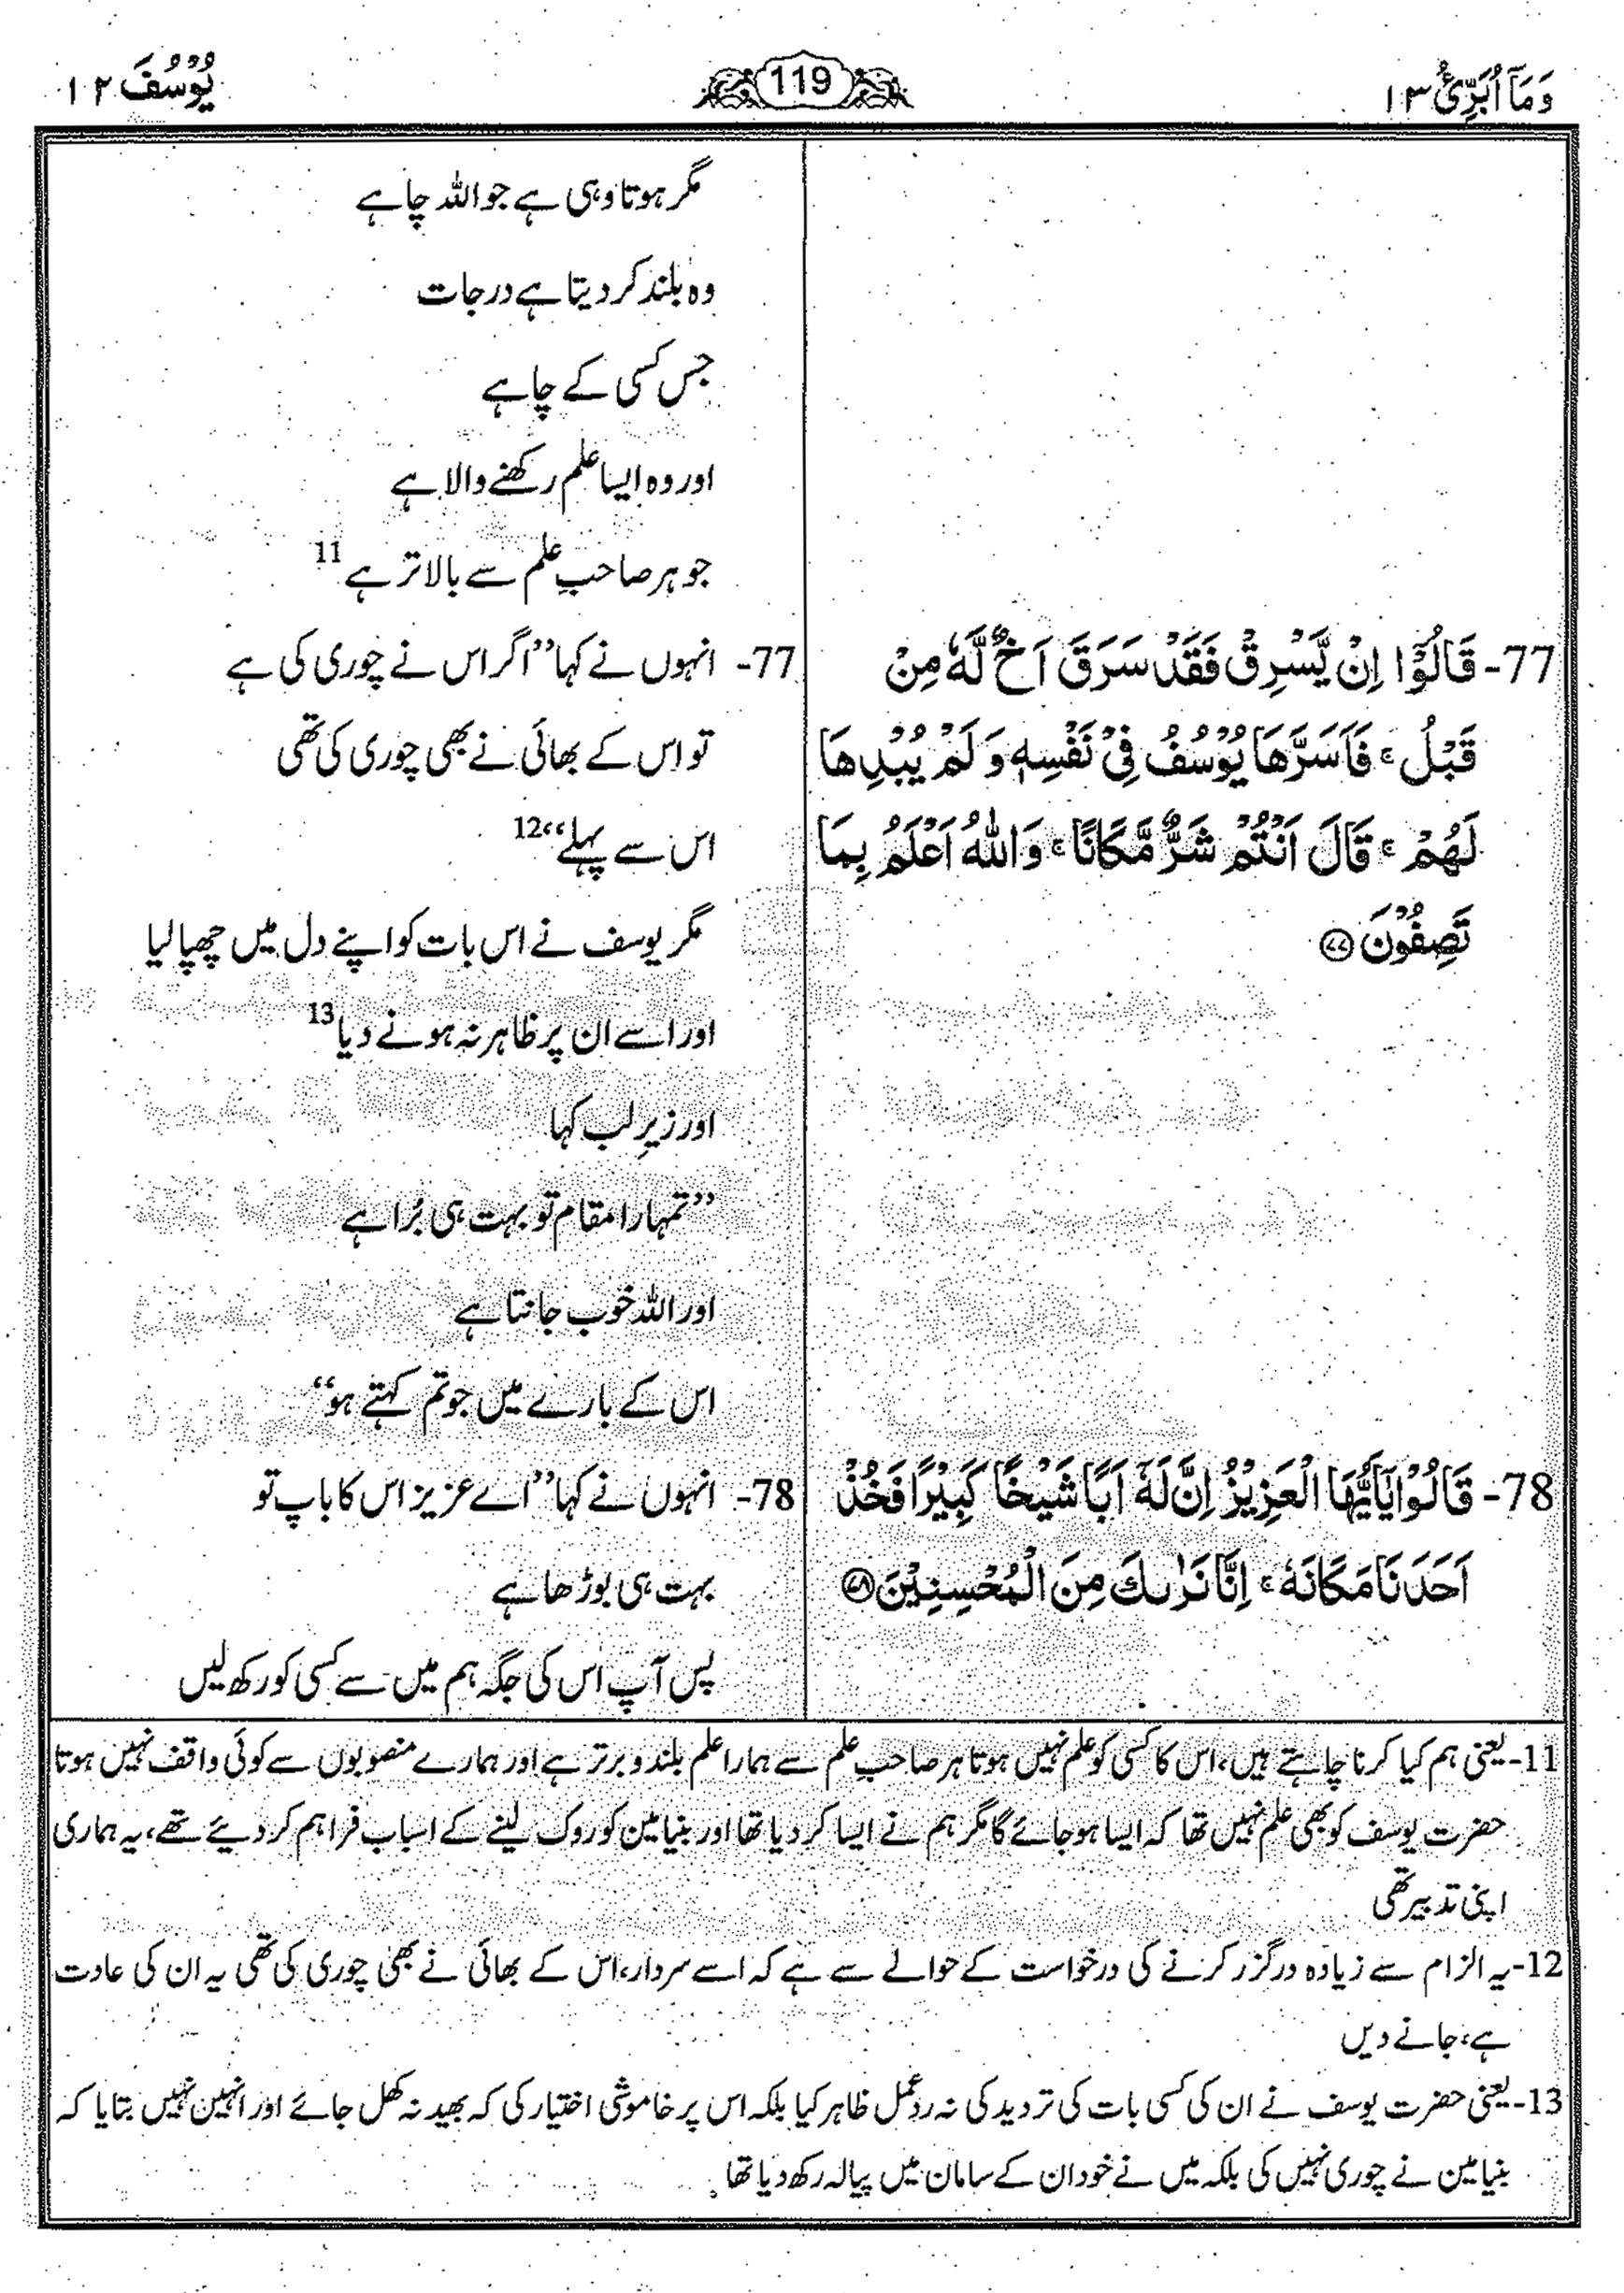 وَمَآ اُبَرِّئُ ۱۳
119
یُوْسُفَ ۱۲
مگر ہوتا وہی ہے جو اللہ چاہے
وہ بلند کر دیتا ہے درجات
جس کسی کے چاہے
اور وہ ایسا علم رکھنے والا ہے
جو ہر صاحبِ علم سے بالاتر ہے 11
77- قَالُوْٓا اِنْ یَّسْرِقْ فَقَدْ سَرَقَ اَخٌ لَّهٗ مِنْ
قَبْلُ ۚ فَاَسَرَّهَا یُوْسُفُ فِیْ نَفْسِهٖ وَ لَمْ یُبْدِهَا
لَهُمْ ۚ قَالَ اَنْتُمْ شَرٌّ مَّكَانًا ۚ وَاللّٰهُ اَعْلَمُ بِمَا
تَصِفُوْنَ ۷۷
77- انہوں نے کہا ”اگر اس نے چوری کی ہے
تو اس کے بھائی نے بھی چوری کی تھی
اس سے پہلے“ 12
مگر یوسف نے اس بات کو اپنے دل میں چھپا لیا
اور اسے ان پر ظاہر نہ ہونے دیا 13
اور زیرِ لب کہا
”تمہارا مقام تو بہت ہی بُرا ہے
اور اللہ خوب جانتا ہے
اس کے بارے میں جو تم کہتے ہو“
78- قَالُوْا یٰٓاَیُّهَا الْعَزِیْزُ اِنَّ لَهٗٓ اَبًا شَیْخًا كَبِیْرًا فَخُذْ
اَحَدَنَا مَكَانَهٗ ۚ اِنَّا نَرٰىكَ مِنَ الْمُحْسِنِیْنَ ۷۸
78- انہوں نے کہا ”اے عزیز اس کا باپ تو
بہت ہی بوڑھا ہے
پس آپ اس کی جگہ ہم میں سے کسی کو رکھ لیں
11- یعنی ہم کیا کرنا چاہتے ہیں، اس کا کسی کو علم نہیں ہوتا ہر صاحبِ علم سے ہمارا علم بلند و برتر ہے اور ہمارے منصوبوں سے کوئی واقف نہیں ہوتا
حضرت یوسف کو بھی علم نہیں تھا کہ ایسا ہو جائے گا مگر ہم نے ایسا کر دیا تھا اور بنیامین کو روک لینے کے اسباب فراہم کر دیئے تھے، یہ ہماری
اپنی تدبیر تھی
12- یہ الزام سے زیادہ درگزر کرنے کی درخواست کے حوالے سے ہے کہ اے سردار، اس کے بھائی نے بھی چوری کی تھی یہ ان کی عادت
ہے، جانے دیں
13- یعنی حضرت یوسف نے ان کی کسی بات کی تردید کی نہ ردِعمل ظاہر کیا بلکہ اس پر خاموشی اختیار کی کہ بھید نہ کھل جائے اور انہیں نہیں بتایا کہ
بنیامین نے چوری نہیں کی بلکہ میں نے خود ان کے سامان میں پیالہ رکھ دیا تھا